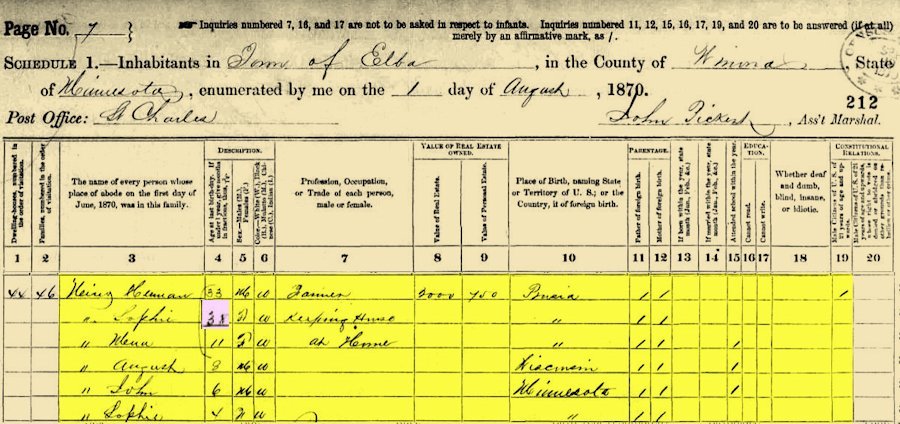 Page No. 7 } Inquiries numbered 7, 16, and 17 are not to be asked in respect to infants. Inquiries numbered 11, 12, 15, 16, 17, 19, and 20 are to be answered (if at all)
merely by an affirmative mark, as /.
SCHEDULE 1.—Inhabitants in Town of Elba, in the County of Winona, State
of Minnesota, enumerated by me on the 1 day of August, 1870.
212
Post Office: St Charles John Pickert, Ass't Marshal.
Dwelling-houses, numbered in the order of visitation.
Families, numbered in the order of visitation.
The name of every person whose place of abode on the first day of June, 1870, was in this family.
DESCRIPTION.
Age at last birth-day. If under 1 year, give months in fractions, thus,
Sex.—Males (M.), Females (F.)
Color.—White (W.), Black (B.), Mulatto (M.), Chinese (C.), Indian (I.)
Profession, Occupation, or Trade of each person, male or female.
VALUE OF REAL ESTATE OWNED.
Value of Real Estate.
Value of Personal Estate.
Place of Birth, naming State or Territory of U. S.; or the Country, if of foreign birth.
PARENTAGE.
Father of foreign birth.
Mother of foreign birth.
If born within the year, state month (Jan., Feb., &c.)
If married within the year, state month (Jan., Feb., &c.)
Attended school within the year.
EDUCATION.
Cannot read.
Cannot write.
Whether deaf and dumb, blind, insane, or idiotic.
CONSTITUTIONAL RELATIONS.
Male Citizens of U. S. of 21 years of age and upwards.
1 2 3 4 5 6 7 8 9 10 11 12 13 14 15 16 17 18 19 20
44 46 Heinz Herman 33 M W Farmer 3000 750 Prusia / / /
" Sophie 38 F W Keeping House " / /
" Mena 11 F W At Home " / / /
" August 8 M W Wisconsin / / /
" John 6 M W Minnesota / / /
" Sophie 4 F W " / /